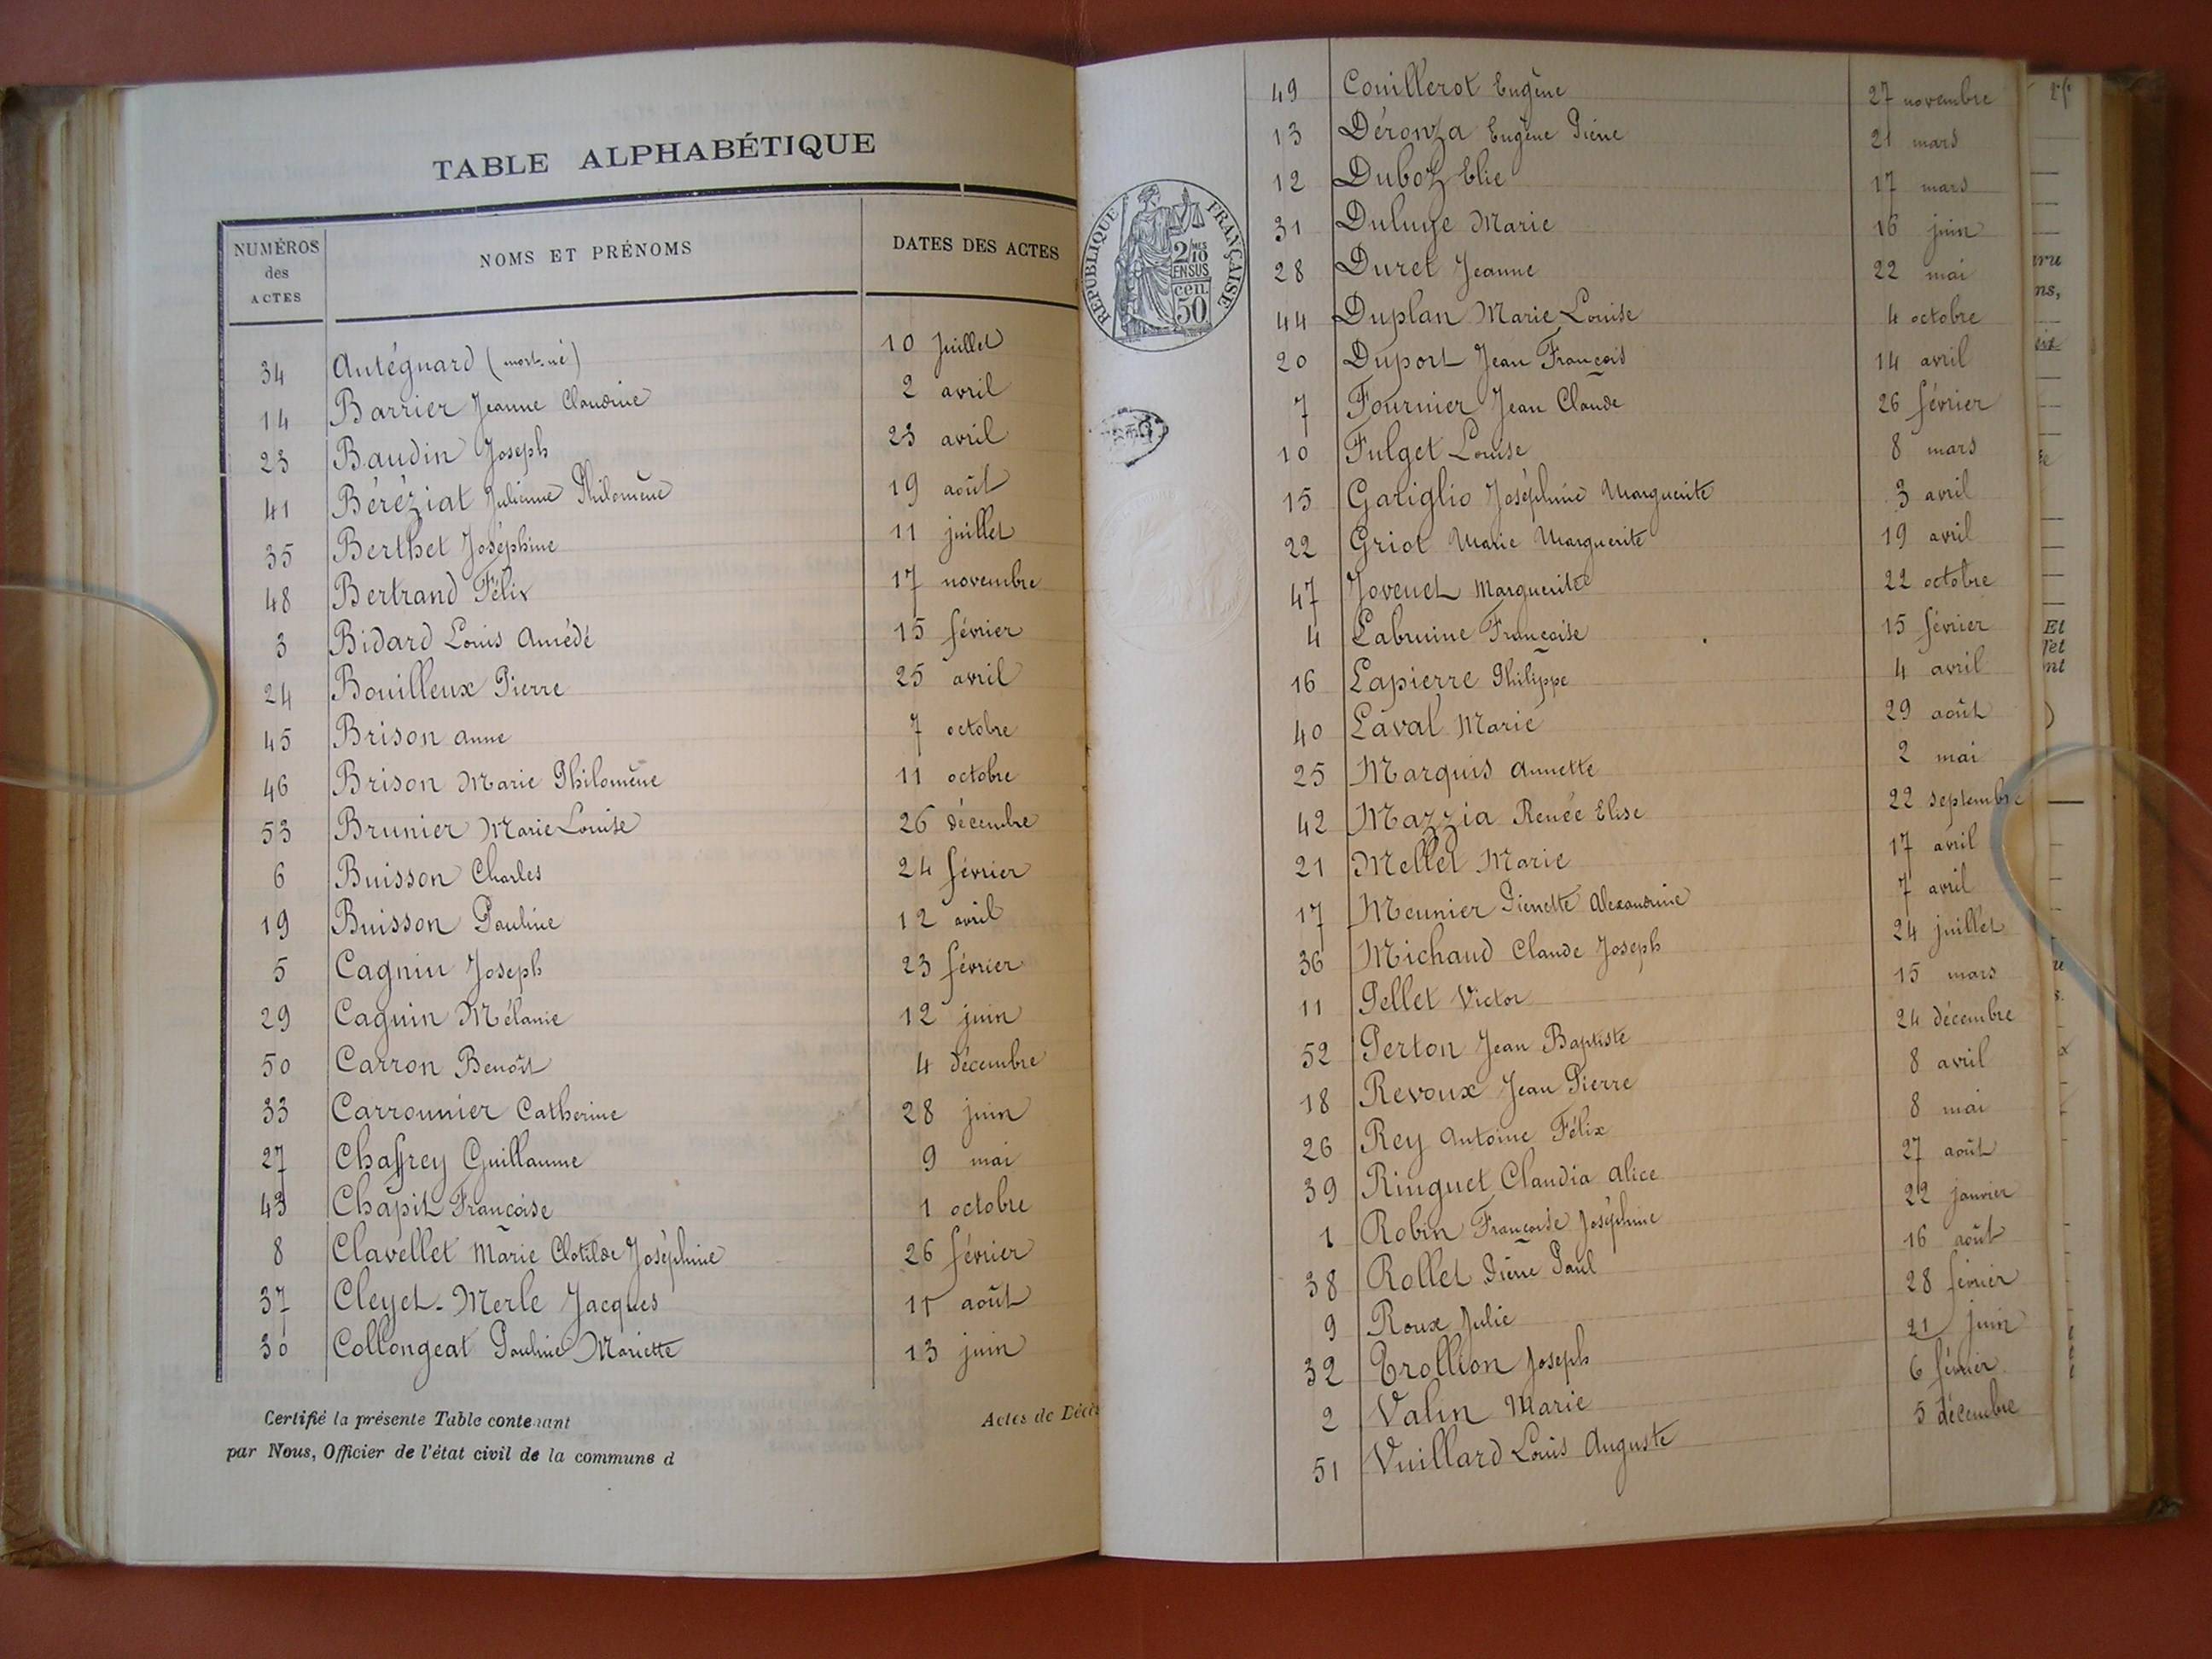 TABLE ALPHABÉTIQUE
NUMÉROS des ACTES NOMS ET PRÉNOMS DATES DES ACTES
34 Antégnard (mort-né) 10 juillet
14 Barrier Jeanne Claudine 2 avril
23 Baudin Joseph 23 avril
41 Béréziat Julienne Philomène 19 août
35 Berthet Joséphine 11 juillet
48 Bertrand Félix 17 novembre
3 Bidard Louis Amédé 15 février
24 Bouilleux Pierre 25 avril
45 Brison Anne 7 octobre
46 Brison Marie Philomène 11 octobre
53 Brunier Marie Louise 26 décembre
6 Buisson Charles 24 février
19 Buisson Pauline 12 avril
5 Cagnin Joseph 23 février
29 Cagnin Mélanie 12 juin
50 Carron Benoît 4 décembre
33 Carronnier Catherine 28 juin
27 Chaffrey Guillaume 9 mai
43 Chapit Françoise 1 octobre
8 Clavellet Marie Clotilde Joséphine 26 février
37 Cleyet-Merle Jacques 11 août
30 Collongeat Pauline Mariette 13 juin
Certifié la présente Table contenant Actes de Décès
par Nous, Officier de l'état civil de la commune d
RÉPUBLIQUE FRANÇAISE
2/10
MES
EN SUS
cen.
50
49 Couillerot Eugène 27 novembre
13 Déronza Eugène Pierre 21 mars
12 Duboz Elie 17 mars
31 Duluye Marie 16 juin
28 Duret Jeanne 22 mai
44 Duplan Marie Louise 4 octobre
20 Duport Jean François 14 avril
7 Fournier Jean Claude 26 février
10 Fulget Louise 8 mars
15 Gariglio Joséphine Marguerite 3 avril
22 Griot Marie Marguerite 19 avril
47 Jovenet Marguerite 22 octobre
4 Labruine Françoise 15 février
16 Lapierre Philippe 4 avril
40 Laval Marie 29 août
25 Marquis Annette 2 mai
42 Mazzia Renée Elise 22 septembre
21 Mellet Marie 17 avril
17 Meunier Pierrette Alexandrine 7 avril
36 Michaud Claude Joseph 24 juillet
11 Pellet Victor 15 mars
52 Perton Jean Baptiste 24 décembre
18 Revoux Jean Pierre 8 avril
26 Rey Antoine Félix 8 mai
39 Ringuet Claudia Alice 27 août
1 Robin Françoise Joséphine 22 janvier
38 Rollet Pierre Paul 16 août
9 Roux Julie 28 février
32 Trollion Joseph 21 juin
2 Valin Marie 6 février
51 Vuillard Louis Auguste 5 décembre